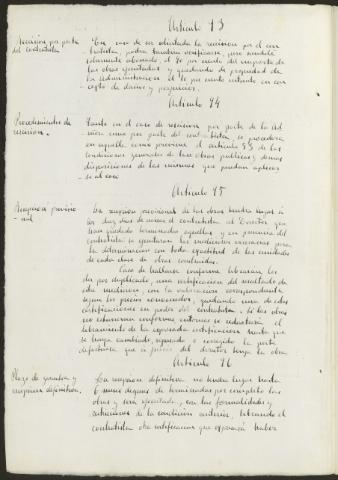 Artículo 93
Rescisión por parte
del contratista
En caso de ser solicitada la rescisión por el con-
tratista, podrá también verificarse, pero siéndole
solamente abonado, el 90 por ciento del importe de
las obras ejecutadas y quedando de propiedad de
la Administración el 10 por ciento restante en con-
cepto de daños y perjuicios.
Artículo 94
Procedimientos de
rescisión.
Tanto en el caso de rescisión por parte de la Ad-
ministración como por parte del contratista, se procederá
en aquella como previene el artículo 53 de las
condiciones generales de las obras públicas y demás
disposiciones de las mismas que puedan aplicar-
se al caso
Artículo 95
Recepción provisio-
nal
La recepción provisional de las obras tendrá lugar a
los diez días de avisar el contratista al Director que
han quedado terminadas aquellas y en presencia del
contratista se ejecutarán las mediciones necesarias para
la determinación con toda exactitud de las unidades
de cada clase de obras construidas.
Caso de hallarse conforme librarán los
dos por duplicado, una certificación del resultado de
esta medición, con la valoración correspondiente
según los precios convenidos, quedando una de estas
certificaciones en poder del contratista. Si las obras
no estuvieran conformes entonces se
libramiento de la expresada certificación hasta que
se haya cambiado, reparado o corregido la parte
defectuosa que a juicio del director tenga la obra.
Artículo 96
Plazo de garantía y
recepción definitiva.
La recepción definitiva no tendrá lugar hasta
6 meses después de terminadas por completo las
obras y será ejecutada, con las formalidades y
de la condición anterior, librando el
contratista otra certificación que expresará haber